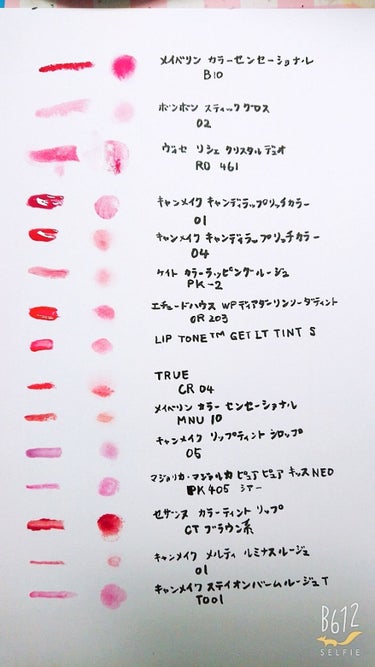 メイベリン カラーセンセーショナル
B10
ボンボン スティックグロス
02
ヴィセ リシェ クリスタルデュオ
RD 461
キャンメイク キャンディラップリッチカラー
01
キャンメイク キャンディラップリッチカラー
04
ケイト カラーラッピングルージュ
PK-2
エチュードハウス WPディアダーリンソーダティント
OR203
LIP TONE™ GET IT TINT S
TRUE
CR 04
メイベリン カラー センセーショナル
MNU 10
キャンメイク リップティント シロップ
05
マジョリカ・マジョルカ ピュア ピュア キッスNEO
PK405 シアー
セザンヌ カラーティント リップ
CT ブラウン系
キャンメイク メルティ ルミナスルージュ
01
キャンメイク ステイオンバームルージュ T
T001
B612
SELFIE